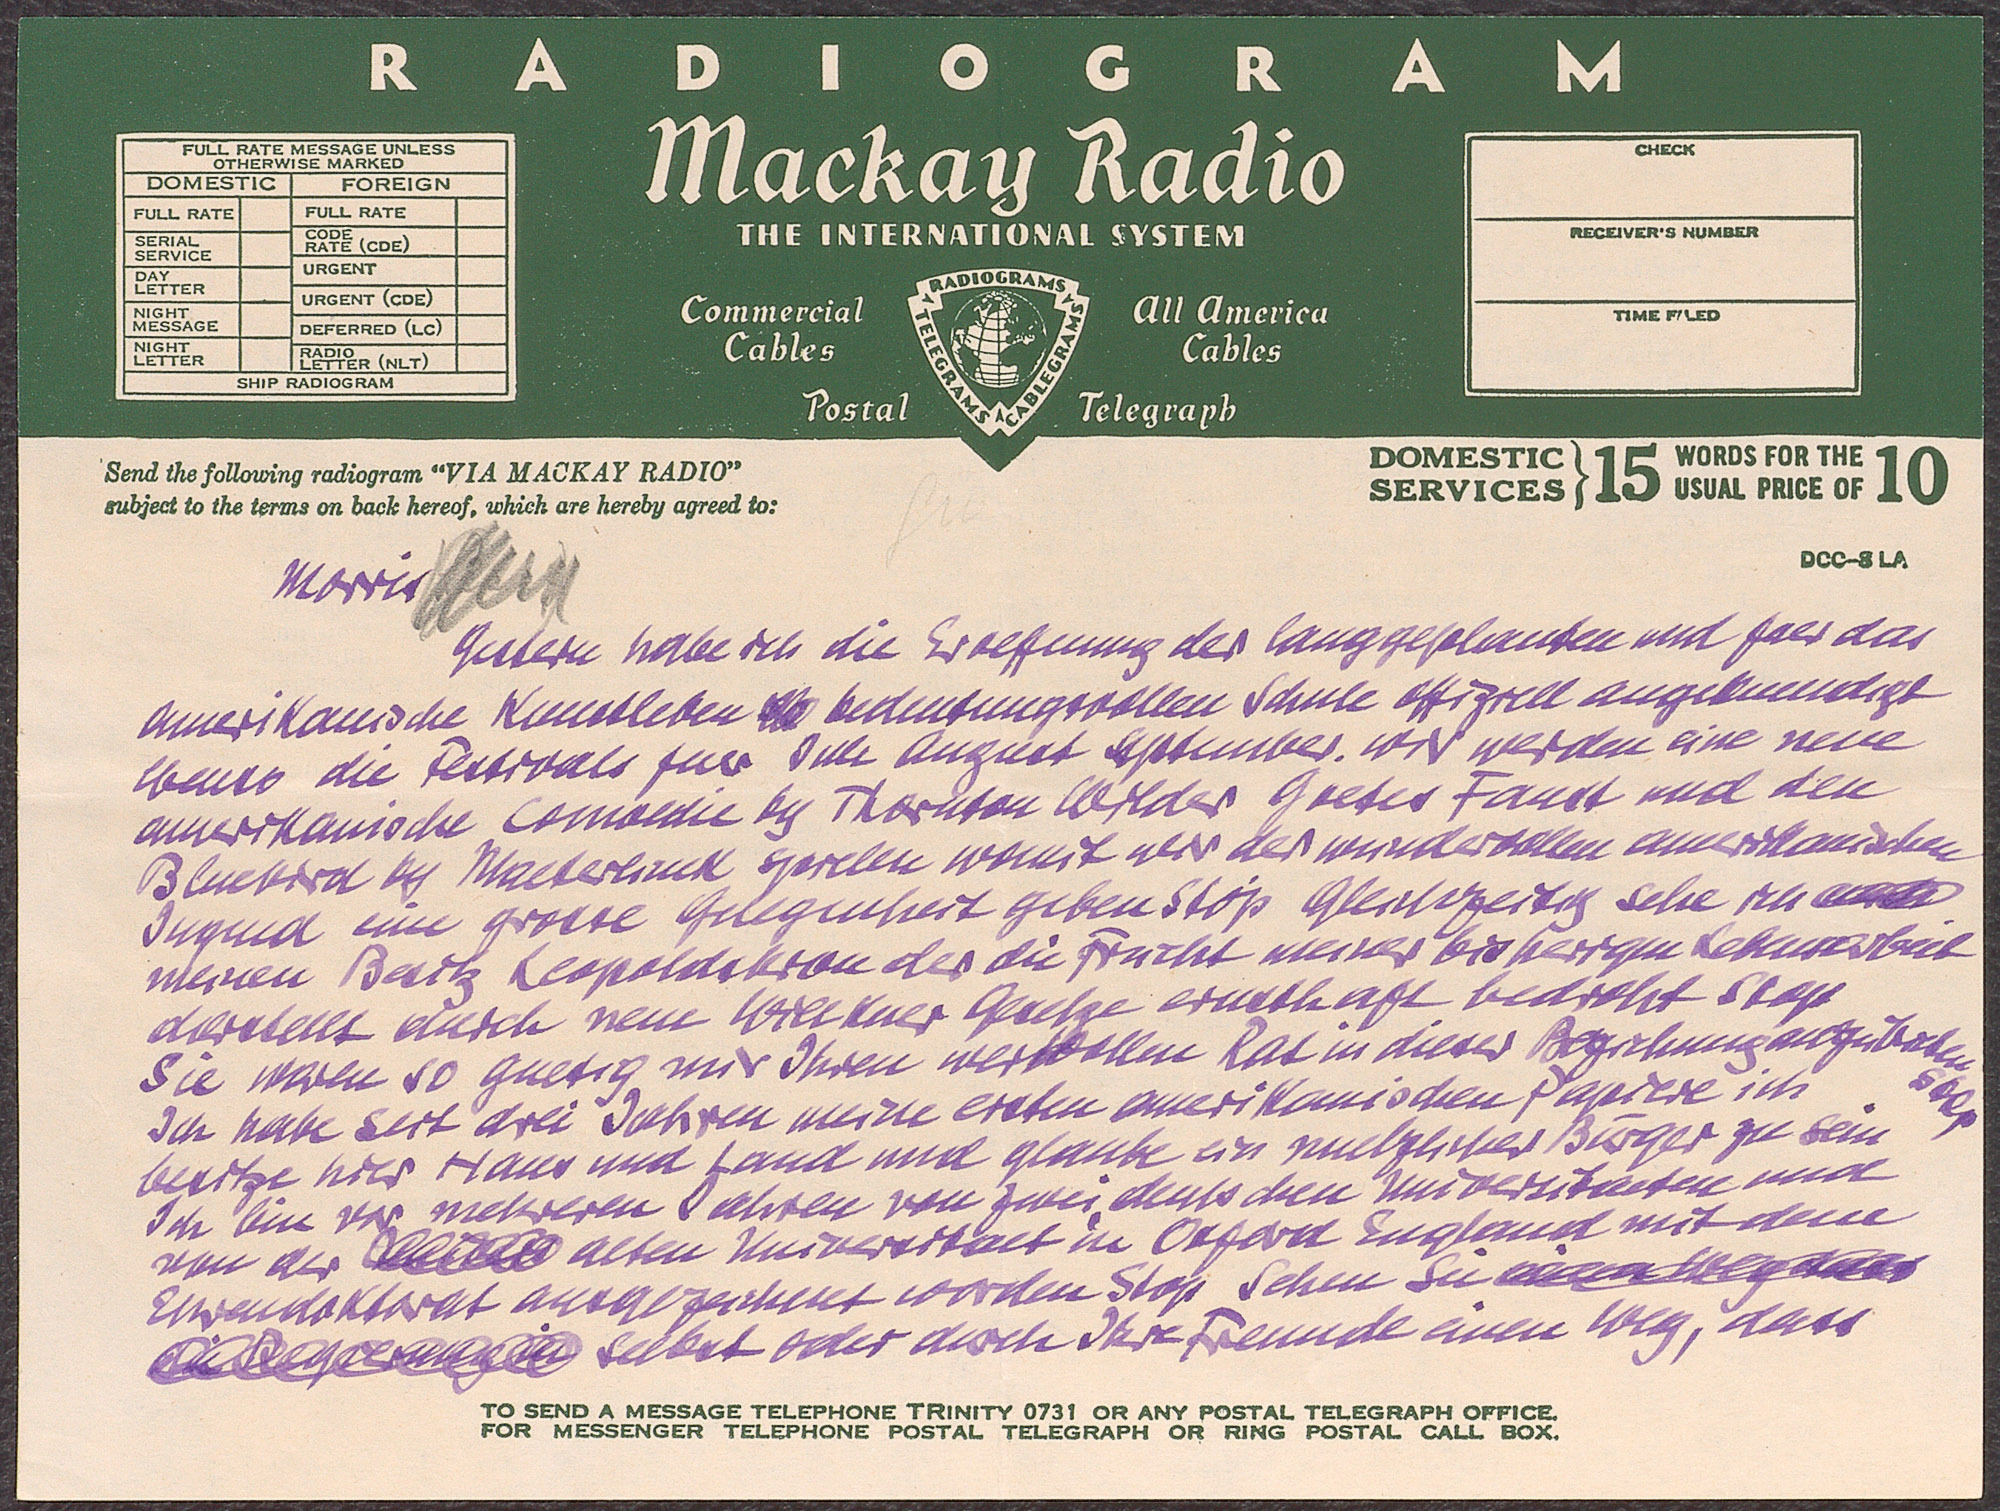 RADIOGRAM
Mackay Radio
THE INTERNATIONAL SYSTEM
FULL RATE MESSAGE UNLESS
OTHERWISE MARKED
DOMESTIC FOREIGN
FULL RATE FULL RATE
SERIAL SERVICE CODE RATE (CDE)
DAY LETTER URGENT
NIGHT MESSAGE URGENT (CDE)
NIGHT LETTER DEFERRED (LC)
RADIO LETTER (NLT)
SHIP RADIOGRAM
Commercial Cables
All America Cables
Postal Telegraph
RADIOGRAMS
TELEGRAMS
CABLEGRAMS
CHECK
RECEIVER'S NUMBER
TIME FILED
Send the following radiogram "VIA MACKAY RADIO"
subject to the terms on back hereof, which are hereby agreed to:
DOMESTIC SERVICES } 15 WORDS FOR THE USUAL PRICE OF 10
DCC-8 LA
Morris
Gestern habe ich die Eroeffnung der langgeplanten und fuer das
amerikanische Kunstleben bedeutungsvollen Schule offiziell angekuendigt
ebenso die Festivals fuer Juli August September. Wir werden eine neue
amerikanische Comoedie by Thornton Wilder Goetes Faust und den
Bluebird by Maeterlinck spielen womit wir der wundervollen amerikanischen
Jugend eine grosse Gelegenheit geben Stop Gleichzeitig sehe ich
meinen Besitz Leopoldskron der die Frucht meiner bisherigen Lebensarbeit
darstellt durch neue Gesetze ernsthaft bedroht Stop
Sie waren so guetig mir Ihren wertvollen Rat in dieser Beziehung anzubieten
Stop
Ich habe seit drei Jahren meine ersten amerikanischen Papiere ich
besitze hier Haus und Land und glaube ein nuetzlicher Bürger zu sein
Ich bin vor mehreren Jahren von zwei deutschen Universitaeten und
von der alten Universitaet in Oxford England mit dem
Ehrendoktorat ausgezeichnet worden Stop Sehen Sie
selbst oder durch Ihre Freunde einen Weg, dass
TO SEND A MESSAGE TELEPHONE TRINITY 0731 OR ANY POSTAL TELEGRAPH OFFICE.
FOR MESSENGER TELEPHONE POSTAL TELEGRAPH OR RING POSTAL CALL BOX.